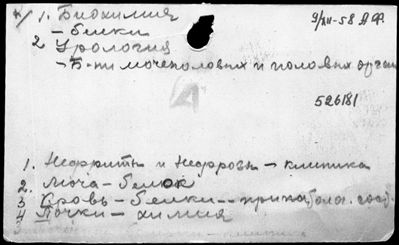 н/ 1. Биохимия
9/XII-58 АФ.
- белки
2 Урология
- Б-ни мочеполовых и половых орган
526181
1. Нефриты и Нефрозы - клиника
2. Моча - белок
3 Кровь - белки -- при патолог. сост.
4 Почки - химия